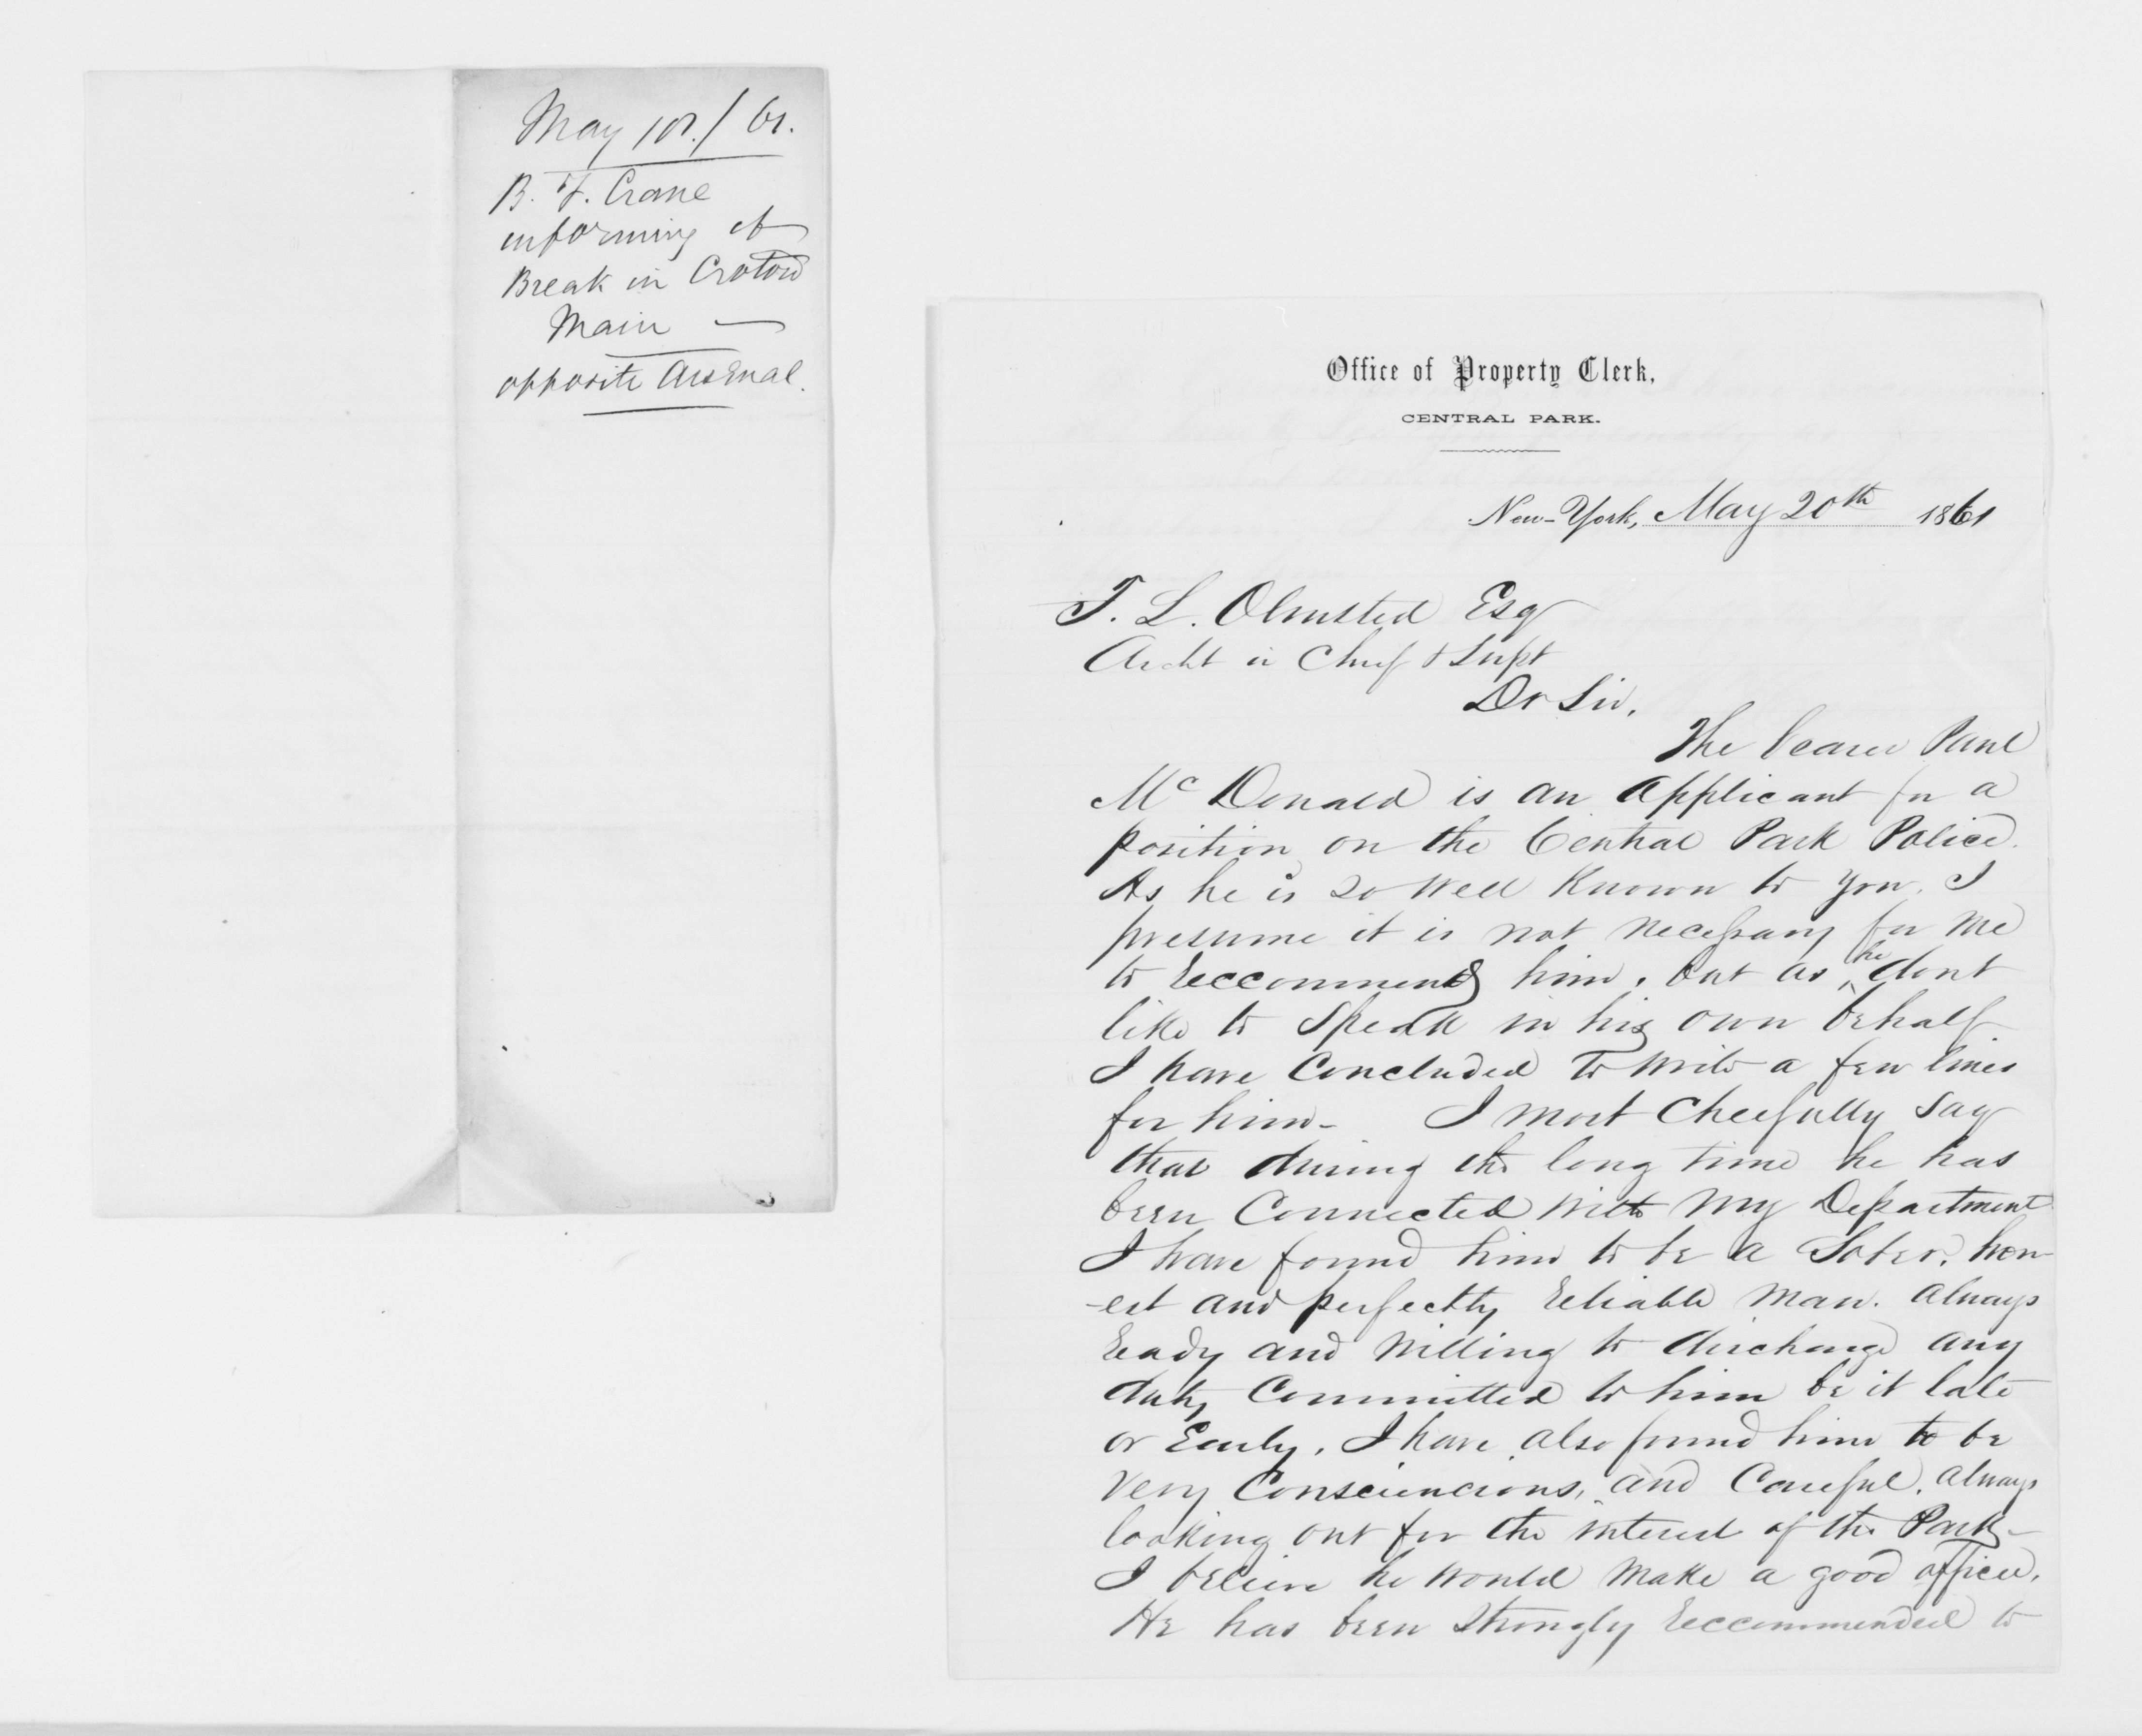 May 10./61.
B. F. Crane
informing of
Break in Croton
Main —
opposite Arsenal.
Office of Property Clerk,
CENTRAL PARK.
New-York, May 20th 1861
F. L. Olmsted Esq
Archt in Chief & Supt
Dr Sir,
The bearer Paul
Mc Donald is an applicant for a
position on the Central Park Police.
As he is so well known to you, I
presume it is not necessary for me
to reccommend him, but as he dont
like to speak in his own behalf
I have concluded to write a few lines
for him - I most cheefully say
that during the long time he has
been connected with my Department
I have found him to be a sober, hon-
-est and perfectly reliable man. always
ready and willing to discharge any
duty committed to him be it late
or early. I have also found him to be
very consciencious, and careful, always
looking out for the interest of the Park -
I believe he would make a good officer.
He has been strongly reccommended to